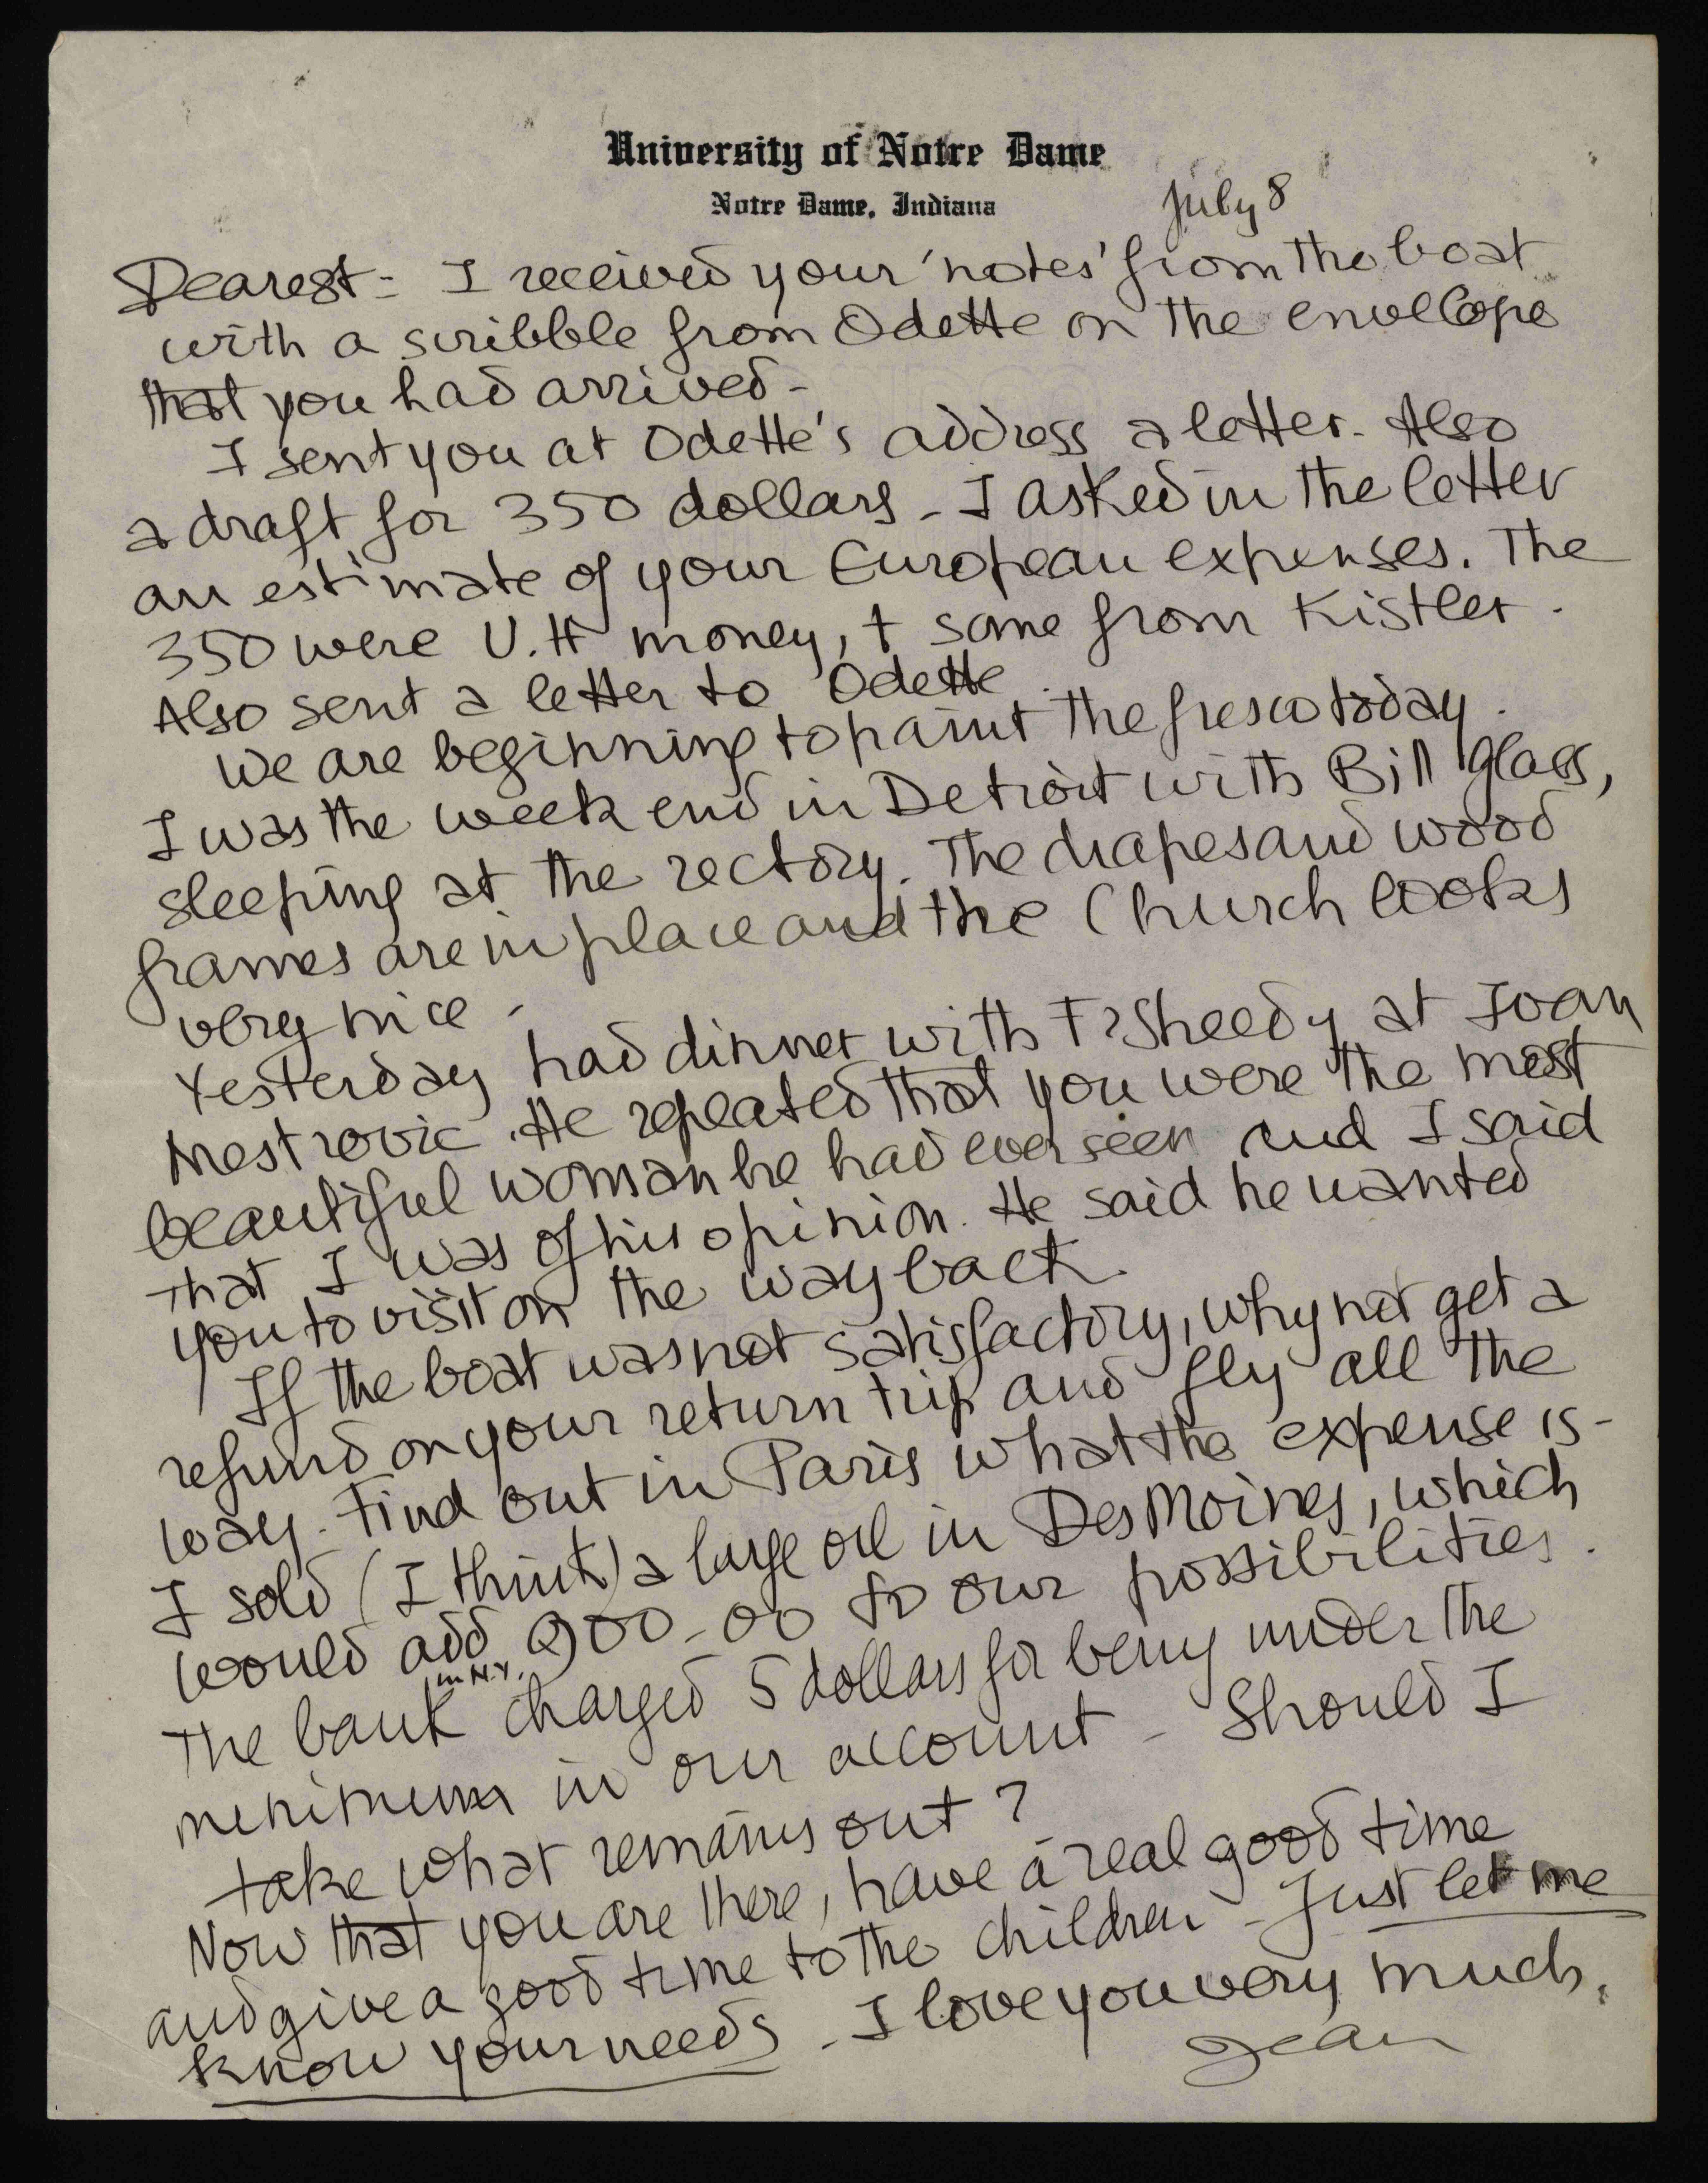 University of Notre Dame
Notre Dame, Indiana
July 8
Dearest - I received your 'notes' from the boat
with a scribble from Odette on the envellope
that you had arrived -
I sent you at Odette's address a letter. Also
a draft for 350 dollars - I asked in the letter
an estimate of your European expenses. The
350 were U.H money, + some from Kistler.
Also sent a letter to Odette.
We are beginning to paint the fresco today.
I was the week end in Detroit with Bill Glass,
sleeping at the rectory. The drapes and wood
frames are in place and the Church looks
very nice -
Yesterday had dinner with Fr Sheedy at Ivan
Mestrovic. He repeated that you were the most
beautiful woman he had ever seen and I said
that I was of his opinion. He said he wanted
you to visit on the way back.
If the boat was not satisfactory, why not get a
refund on your return trip and fly all the
way. Find out in Paris what the expense is -
I sold (I think) a large oil in Des Moines, which
would add 900-00 to our possibilities.
in N.Y.
The bank charged 5 dollars for being under the
menimum in our account - Should I
take what remains out?
Now that you are there, have a real good time
and give a good time to the children - Just let me
know your needs - I love you very much.
Jean